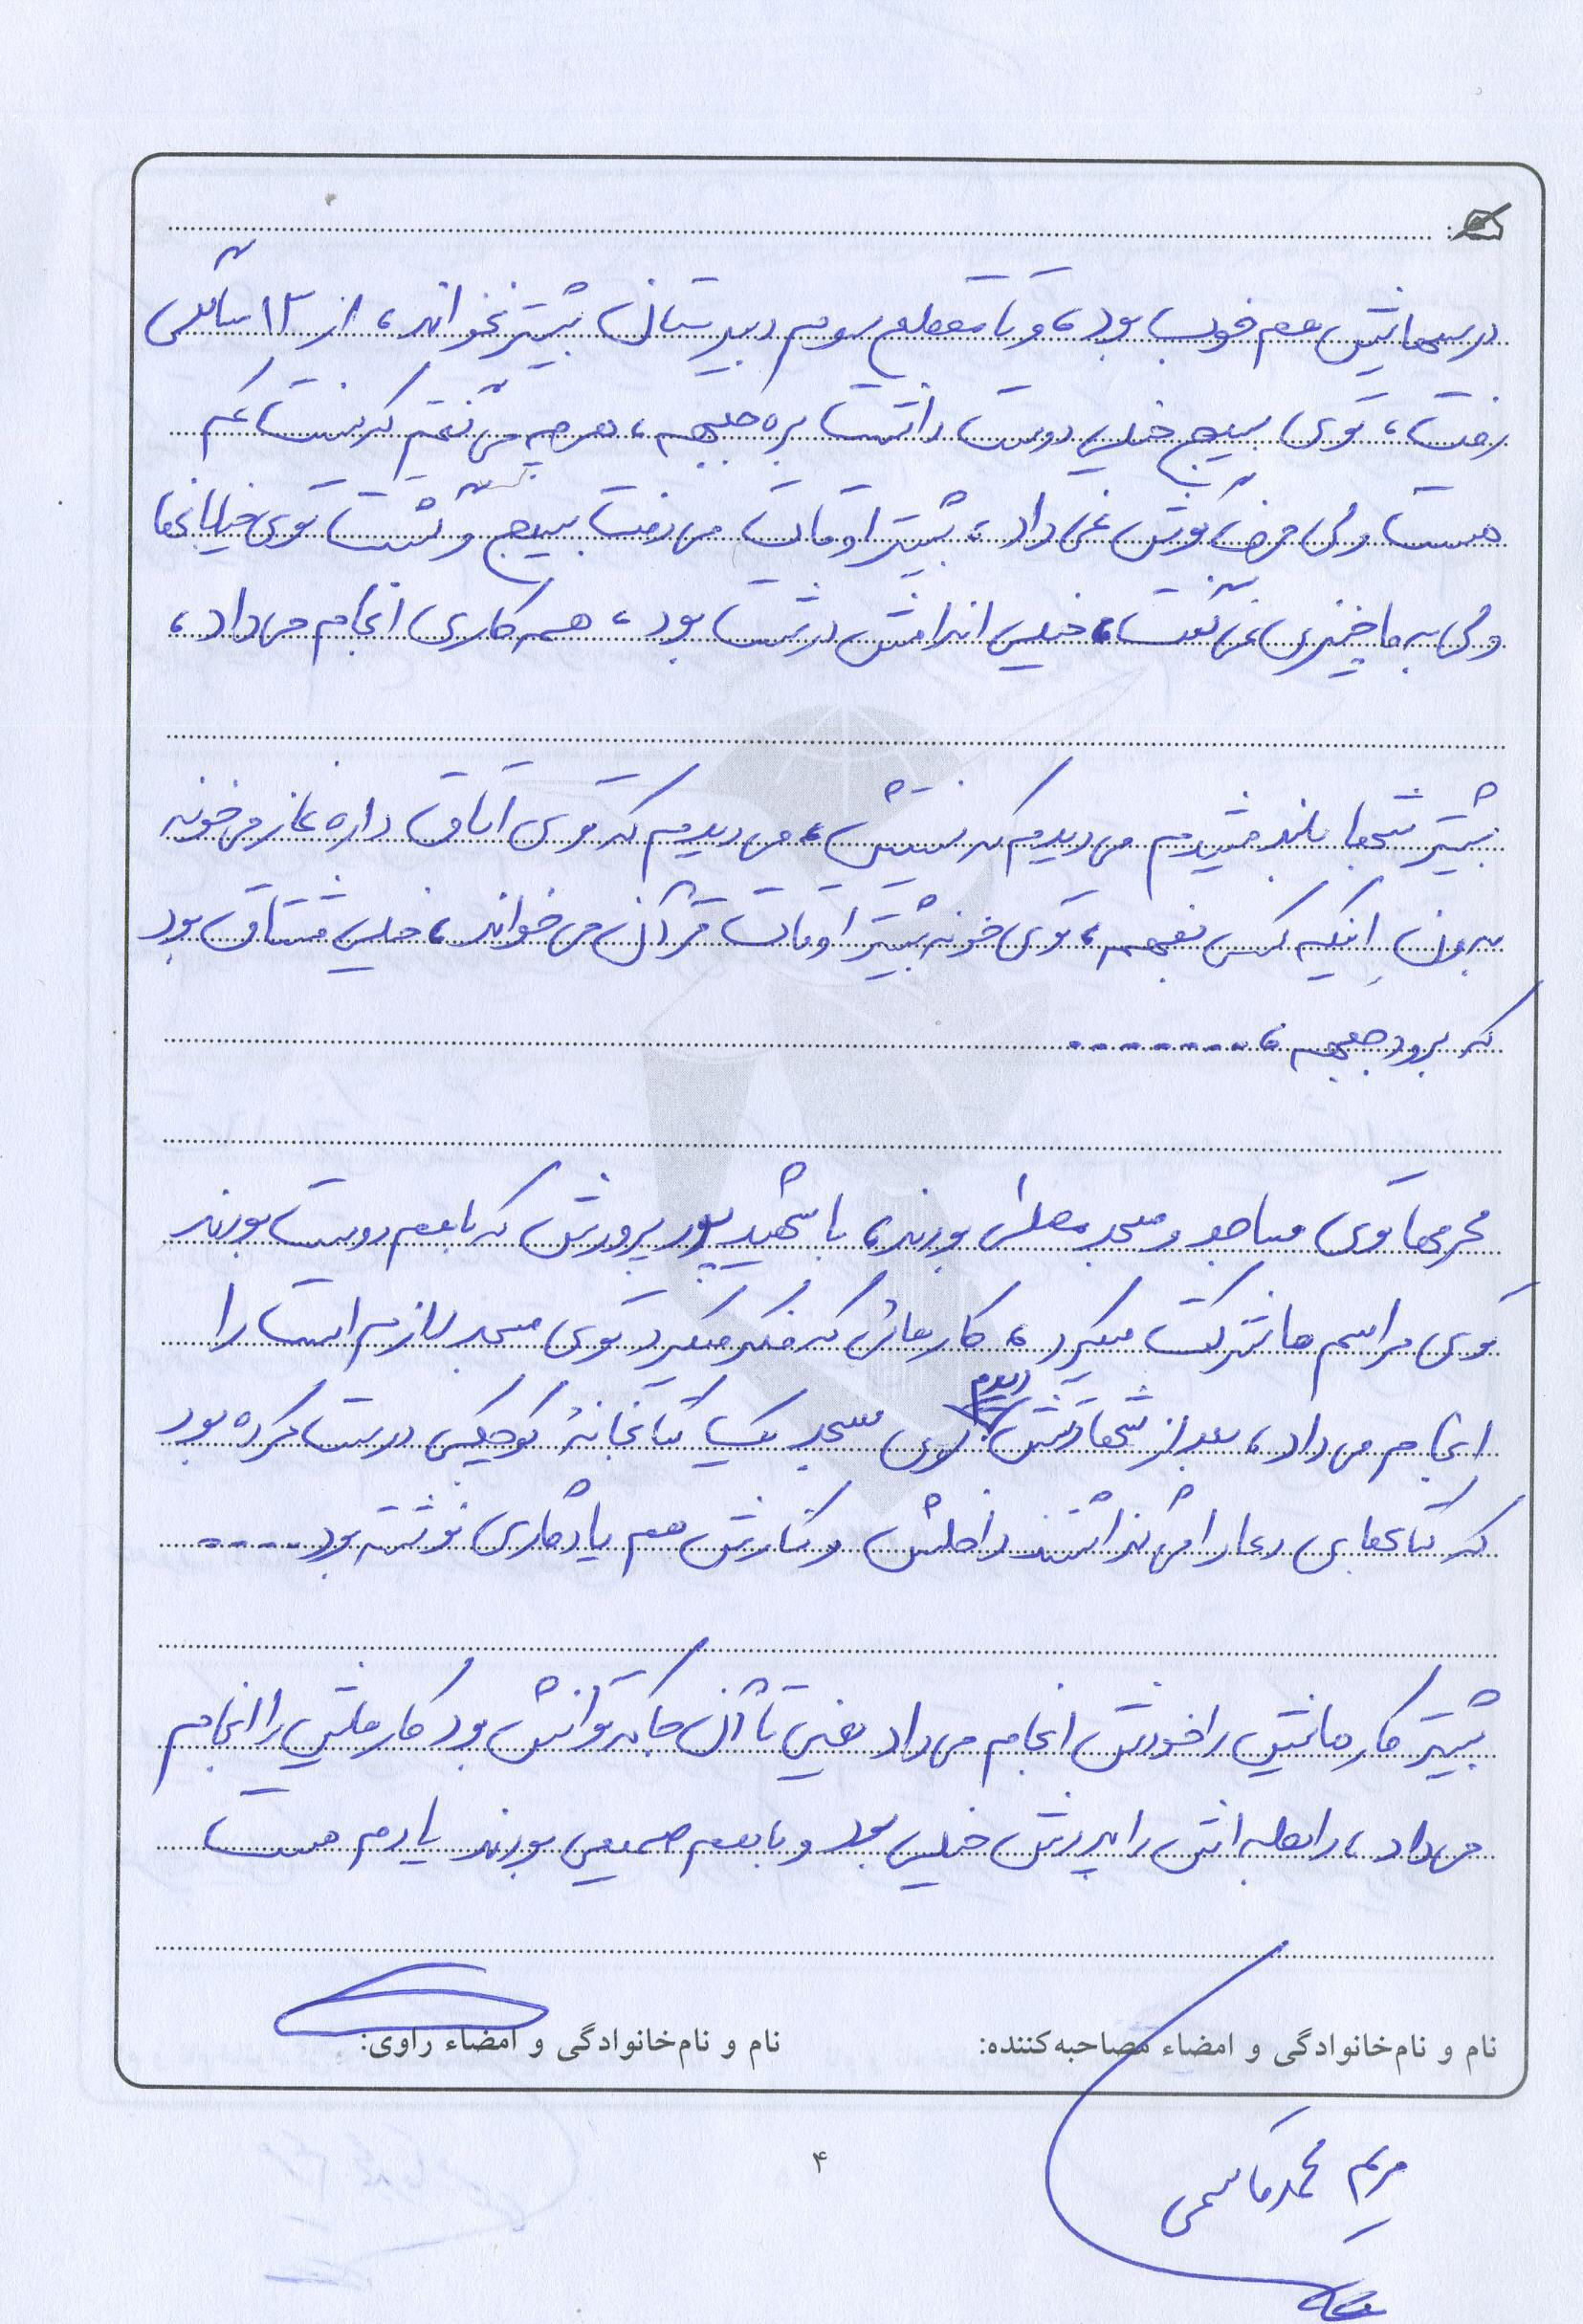 درسهایش هم خوب بود، و تا مقطع سوم دبیرستان بیشتر نخواند، از ۱۳ سالگی
رفت، توی بسیج خیلی دوست داشت بره جبهه، هرچه می گفتم که سنت کم
هست ولی حرف گوش نمی داد، بیشتر اوقات می رفت بسیج و گشت توی خیابانها
ولی به ما چیزی نمی گفت، خیلی اندامش درشت بود، همه کاری انجام می داد،
بیشتر شبها بلند میشدم می دیدم که نیستش، می دیدم که توی اتاق داره نماز می خونه
بدون اینکه کسی بفهمه، توی خونه بیشتر اوقات قرآن می خواند، خیلی مشتاق بود
که برود جبهه، .......
محرمها توی مساجد و مسجد محلش بودند، با شهید پور پرورش که با هم دوست بودند
توی مراسم ها شرکت میکرد، کارهائی که فکر میکرد توی مسجد لازم است را
انجام می داد، بعد از شهادتش دیدم توی مسجد یک کتابخانۀ کوچکی درست کرده بود
که کتابهای دعا را می گذاشتند داخلش و کنارش هم یادگاری نوشته بود ....
بیشتر کارهایش را خودش انجام می داد یعنی تا آن جا که توانش بود کارهایش را انجام
می داد، رابطه اش با پدرش خیلی بود و با هم صمیمی بودند یادم هست
نام و نام‌خانوادگی و امضاء مصاحبه‌کننده: نام و نام‌خانوادگی و امضاء راوی:
مریم محمدقاسمی
۴